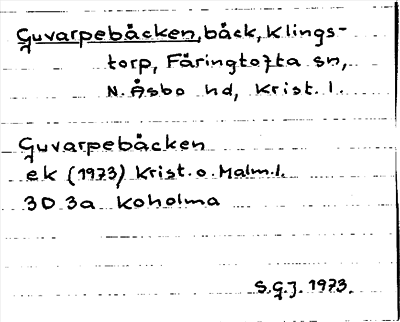 Guvarpebäcken, bäck, Klings-
torp, Färingtofta sn,
N. Åsbo hd, Krist. l.
Guvarpebäcken
ek (1973) Krist. o. Malm. l.
3D 3a Koholma
S.G.J. 1973.